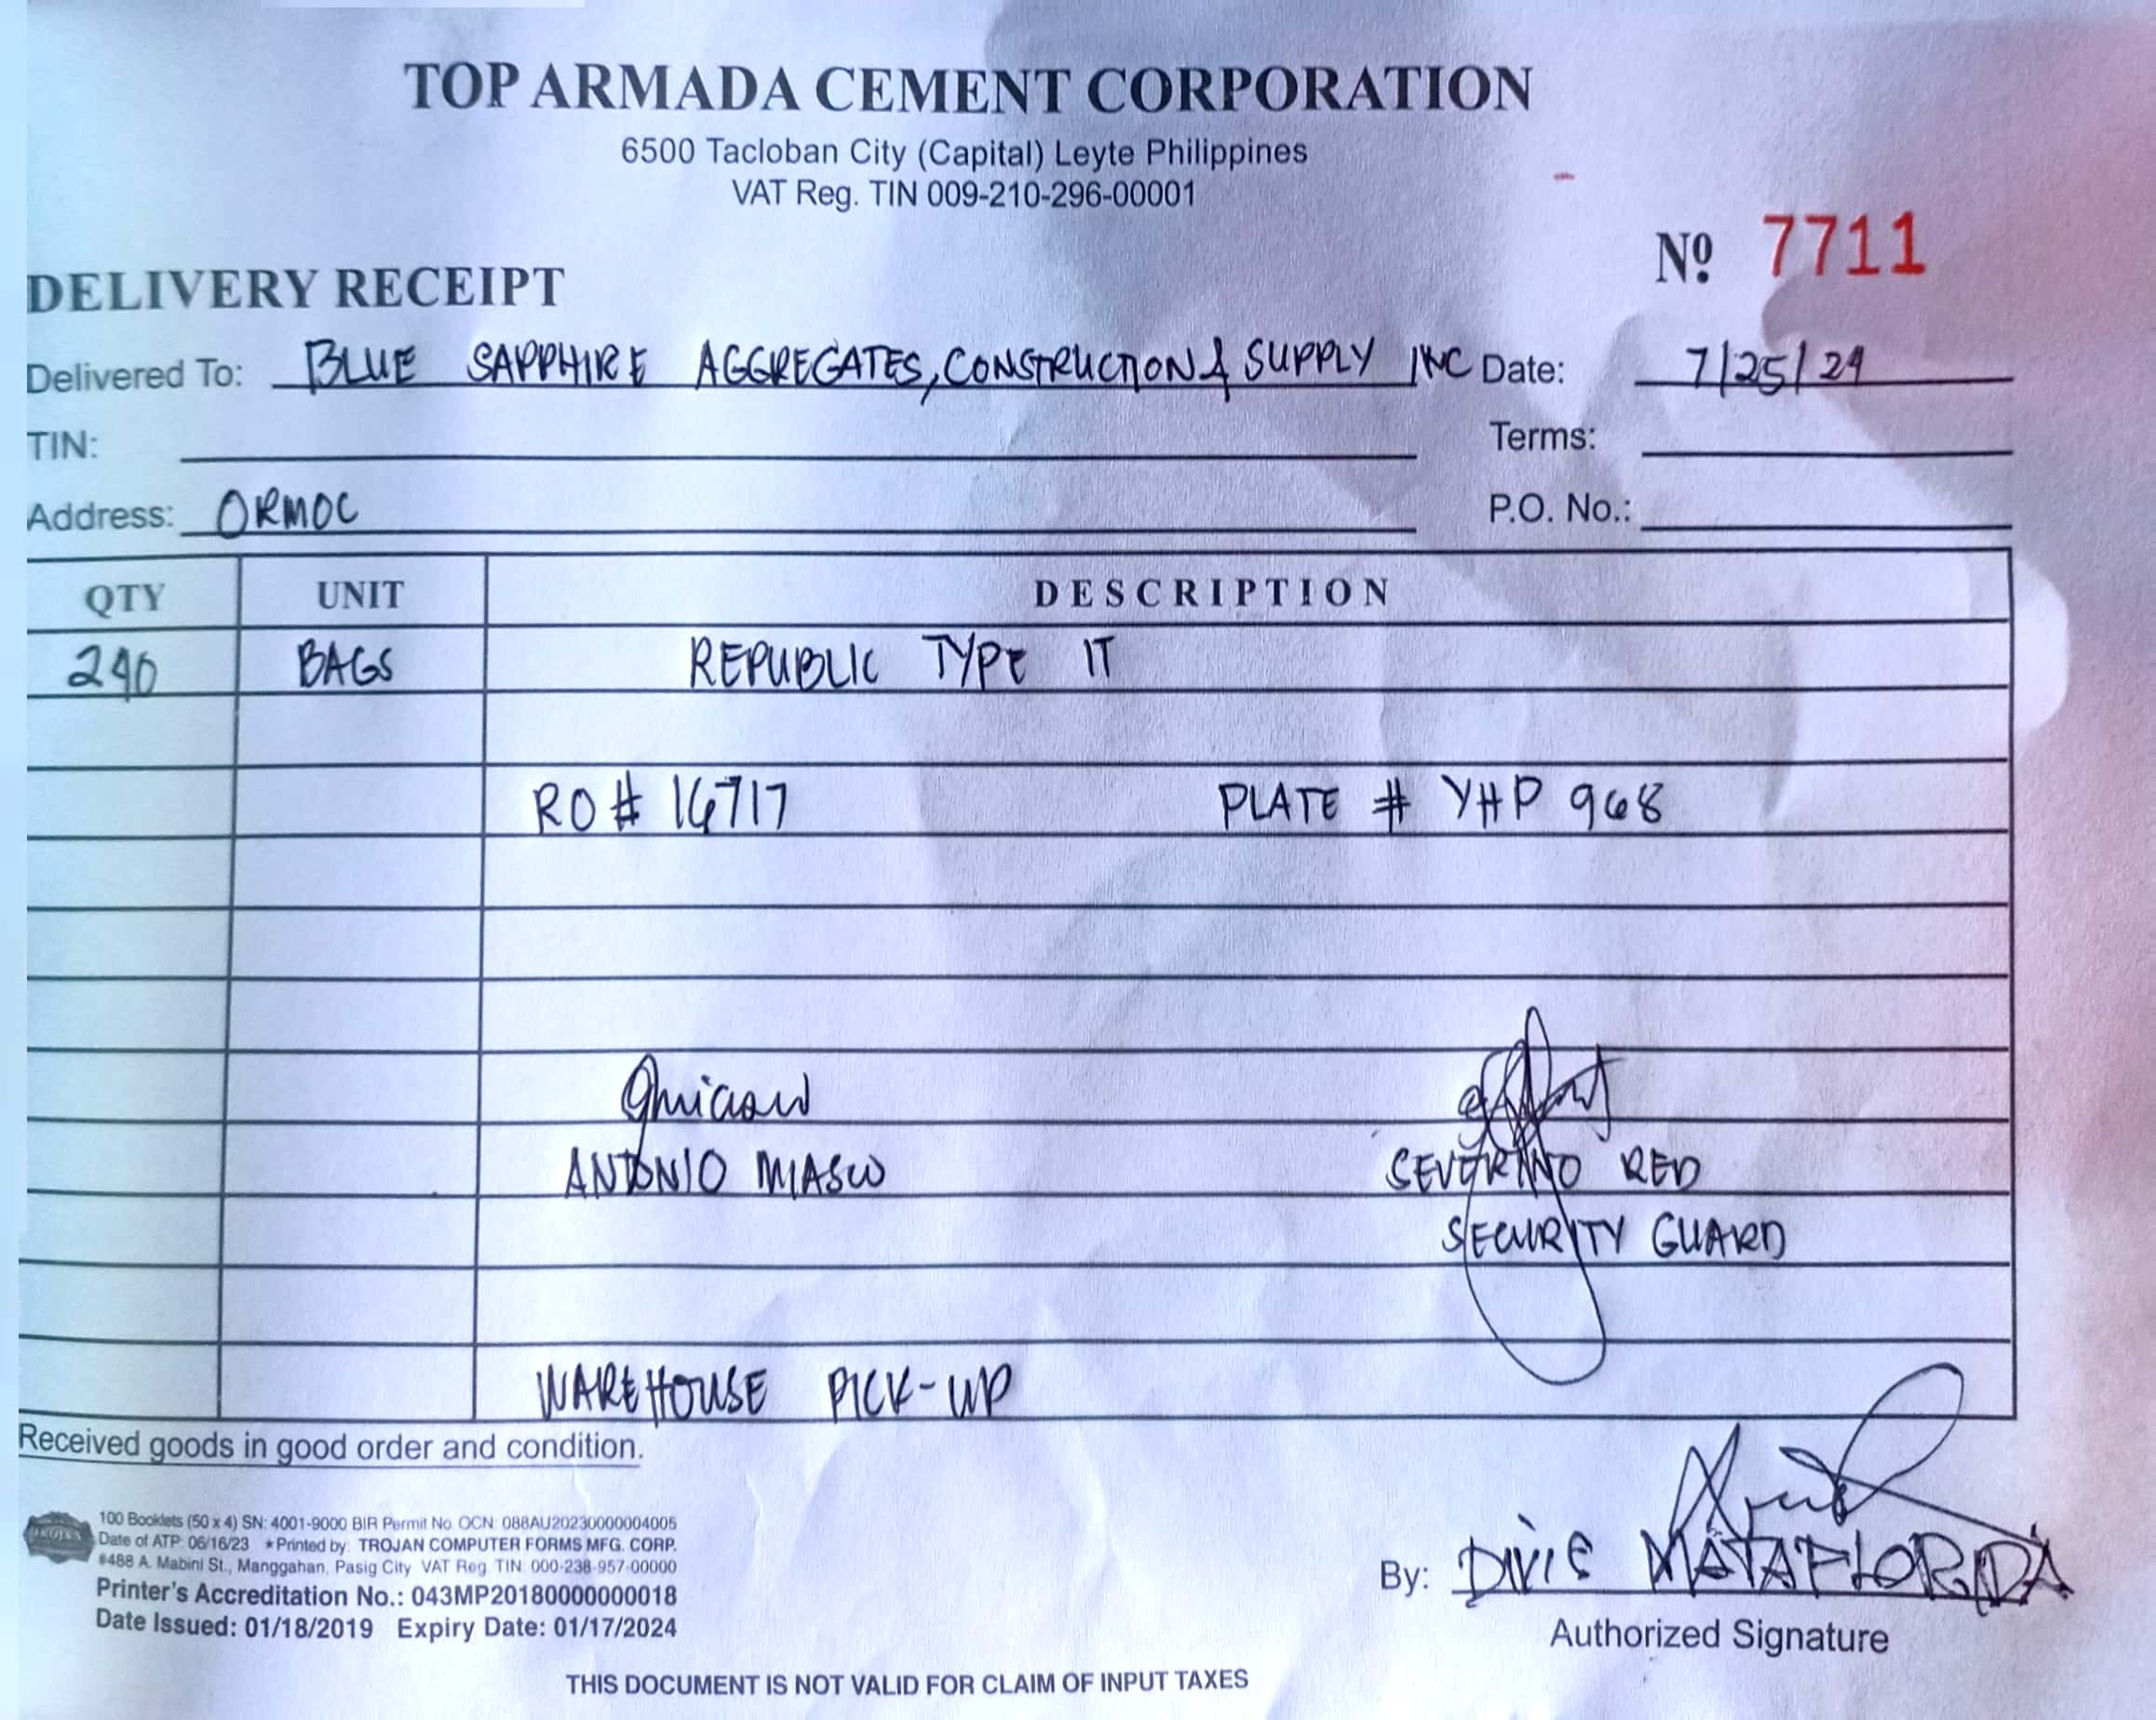 TOP ARMADA CEMENT CORPORATION
6500 Tacloban City (Capital) Leyte Philippines
VAT Reg. TIN 009-210-296-00001
Nº 7711
DELIVERY RECEIPT
Delivered To: BLUE SAPPHIRE AGGREGATES, CONSTRUCTION & SUPPLY INC Date: 7/25/24
TIN: Terms:
Address: ORMOC P.O. No.:
QTY UNIT DESCRIPTION
240 BAGS REPUBLIC TYPE 1T
RO # 16717 PLATE # YHP 968
ANTONIO SEVERINO RED
SECURITY GUARD
WAREHOUSE PICK-UP
Received goods in good order and condition.
100 Booklets (50 x 4) SN: 4001-9000 BIR Permit No. OCN: 088AU20230000004005
Date of ATP: 06/16/23 ★Printed by: TROJAN COMPUTER FORMS MFG. CORP.
#488 A. Mabini St., Manggahan, Pasig City VAT Reg. TIN: 000-238-957-00000
Printer's Accreditation No.: 043MP20180000000018
Date Issued: 01/18/2019 Expiry Date: 01/17/2024
By: DIVIE MATAFLORIDA
Authorized Signature
THIS DOCUMENT IS NOT VALID FOR CLAIM OF INPUT TAXES